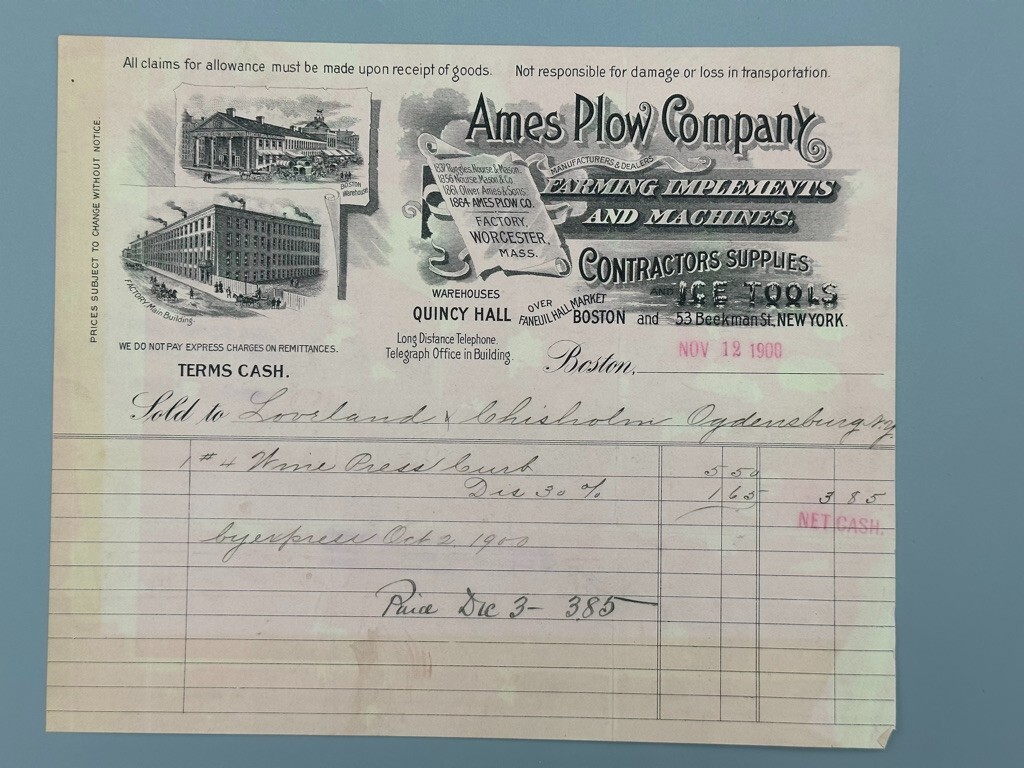 All claims for allowance must be made upon receipt of goods. Not responsible for damage or loss in transportation.
PRICES SUBJECT TO CHANGE WITHOUT NOTICE.
BOSTON
Warehouse
FACTORY Main Building.
WE DO NOT PAY EXPRESS CHARGES ON REMITTANCES.
TERMS CASH.
Ames Plow Company
MANUFACTURERS & DEALERS
FARMING IMPLEMENTS
AND MACHINES.
Ruggles, Nourse & Mason.
1856 Nourse, Mason & Co.
1861 Oliver Ames & Sons.
1864 AMES PLOW CO.
FACTORY,
WORCESTER,
MASS.
CONTRACTORS SUPPLIES
AND ICE TOOLS
WAREHOUSES
QUINCY HALL OVER FANEUIL HALL MARKET BOSTON and 53 Beekman St. NEW YORK.
Long Distance Telephone.
Telegraph Office in Building.
Boston, NOV 12 1900
Sold to Loveland & Chisholm Ogdensburg N.Y.
1 #4 Wine Press Curb 5 50
Dis 30 % 1 65 3 85
NET CASH.
by express Oct 2 1900
Paid Dec 3 - 3.85